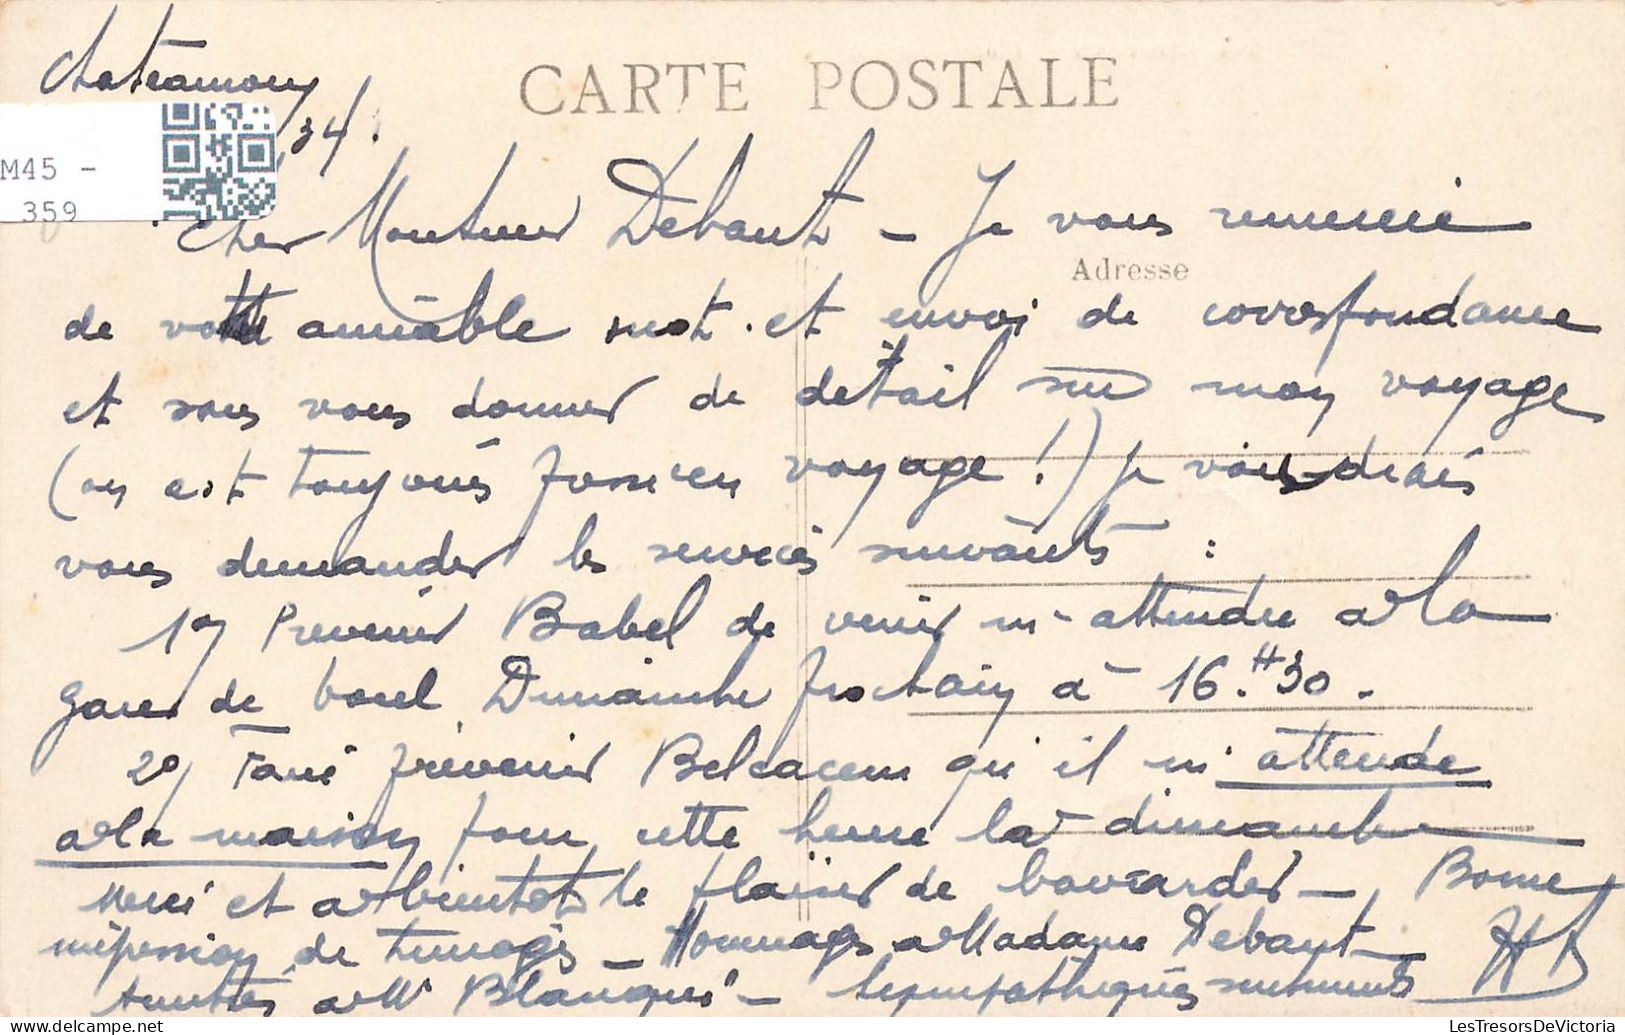 CARTE POSTALE
34.
M45 -
359
Cher Monsieur Debaut - Je vous remercie
Adresse
de votre aimable mot. et envoi de correspondance
et sans vous donner de détail sur mon voyage
(on est toujours forcien voyage !) je voudrais
vous demander les services suivants :
1°) Prevenir Babel de venir m'attendre à la
gare de borel Dimanche prochain à 16.H30.
2°) Faire prévenir Belcacem qu'il m'attende
à la maison pour cette heure là dimanche
Merci et à bientôt le plaisir de bavarder - Bonne
impression de Limoges - Hommages à Madame Debaut -
à Mr Blanqui - sympathiques sentiments
LesTresorsDeVictoria
delcampe.net